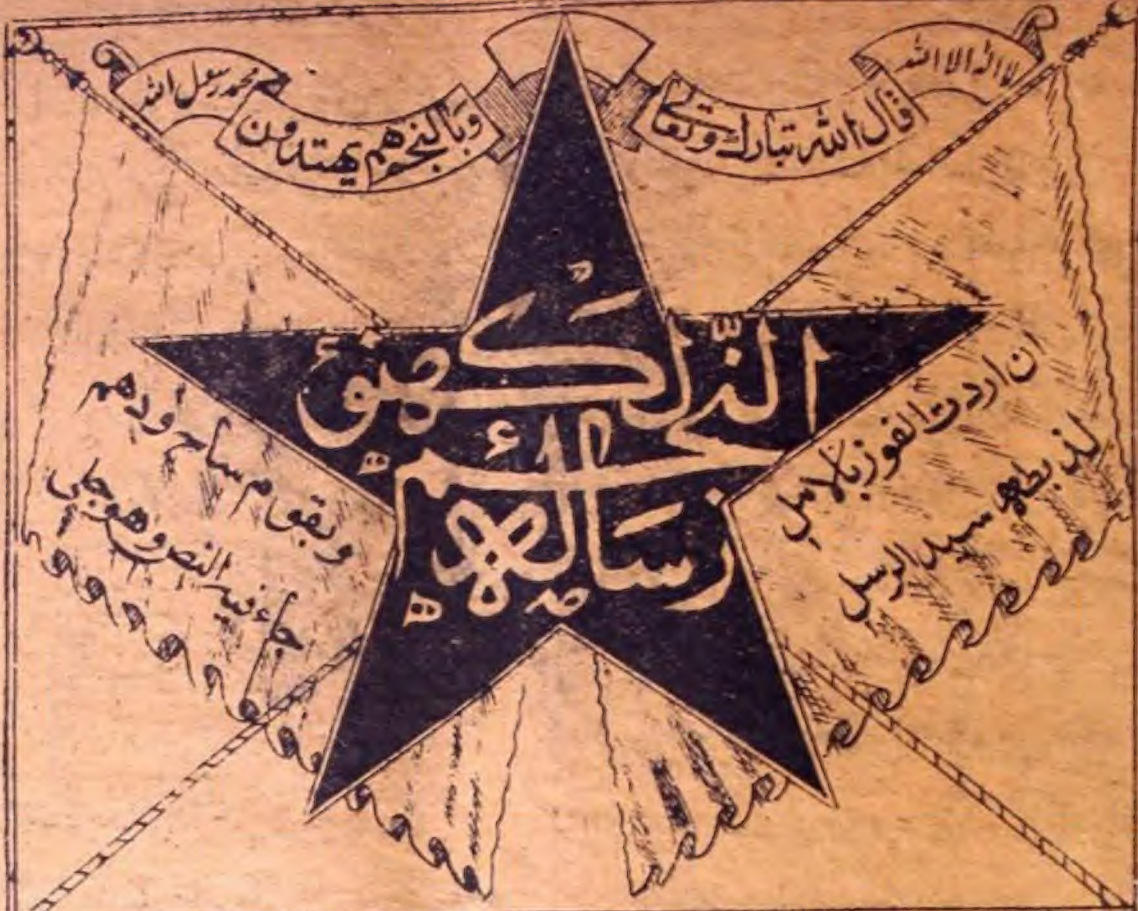 لا اله الا الله
قال الله تبارك وتعالى
وبالنجم هم يهتدون
محمد رسول الله
النجم لکھنؤ
رسالہ
ان اردت الفوز بالامل
لذ بطه سيد الرسل
وبقوم ودهم
جاء فيه النص وهو جلي